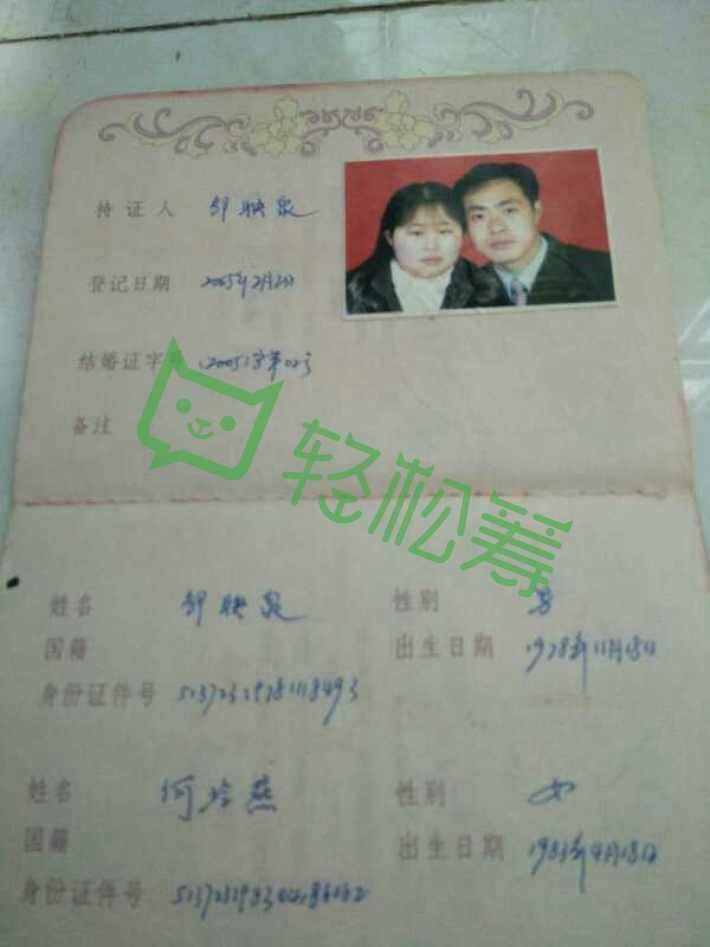 持证人 邹映泉
登记日期 2005年2月2日
结婚证字号 (2005)字第02号
备注
轻松筹
姓名 邹映泉 性别 男
国籍
出生日期 1978年11月18日
身份证件号
姓名 何 燕 性别 女
国籍
出生日期 1983年4月18日
身份证件号